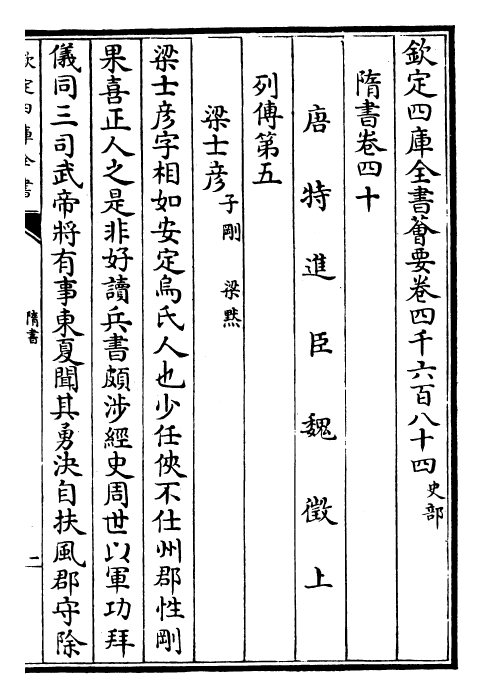 欽定四庫全書薈要卷四千六百八十四 史部
隋書卷四十
唐特進臣魏徵上
列傳第五
梁士彦 子剛 梁黙
梁士彦字相如安定烏氏人也少任俠不仕州郡性剛
果喜正人之是非好讀兵書頗涉經史周世以軍功拜
儀同三司武帝將有事東夏聞其勇決自扶風郡守除
欽定四庫全書
隋書
一